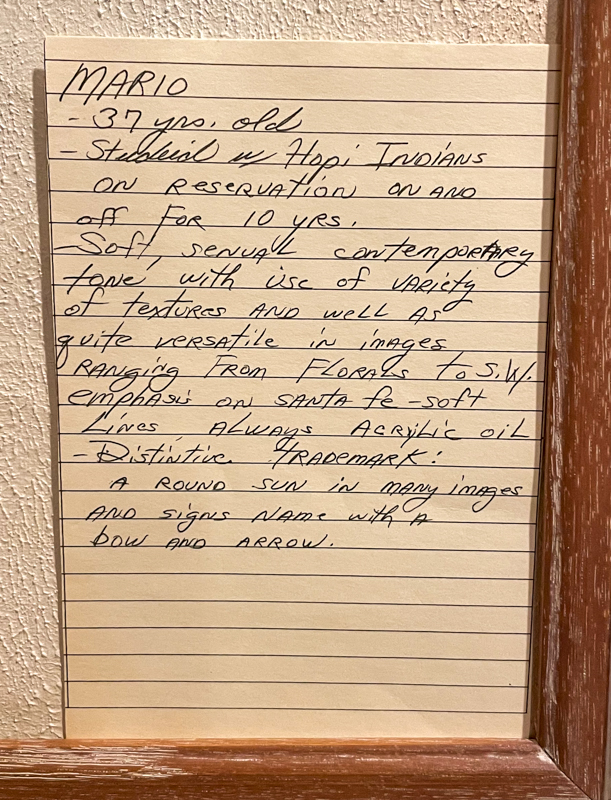 MARIO
- 37 yrs. old
- Studied w/ Hopi INDIANS
ON RESERVATION ON AND
off FOR 10 yRS.
- Soft, senual contemporary
tone with use of variety
of textures AND well AS
quite versatile in images
RANGING FROM FLORALS to S.W.
emphasis on SANTA fe - soft
Lines ALWAYS ACRYLIC OIL
- Distintive TRADEMARK:
A ROUND SUN IN MANY images
AND signs NAME with A
bow AND ARROW.